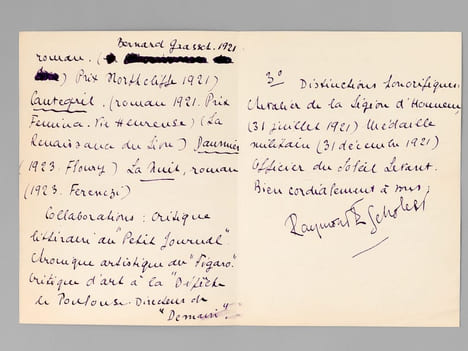 Bernard Grasset. 1921
roman. (
) Prix Northcliffe 1921)
Cantegril. (roman 1921. Prix
Femina-Vie Heureuse) (La
Renaissance du Livre) Daumier
(1923. Floury) La Nuit, roman
(1923. Ferenczi)
Collaborations : Critique
littéraire au "Petit Journal".
Chronique artistique au "Figaro".
Critique d'art à la "Dépêche
de Toulouse. Directeur de
"Demain".
3° Distinctions honorifiques.
Chevalier de la Légion d'Honneur
(31 juillet 1921) Médaille
militaire (31 décembre 1921)
Officier du Soleil Levant.
Bien cordialement à vous,
Raymond Escholier